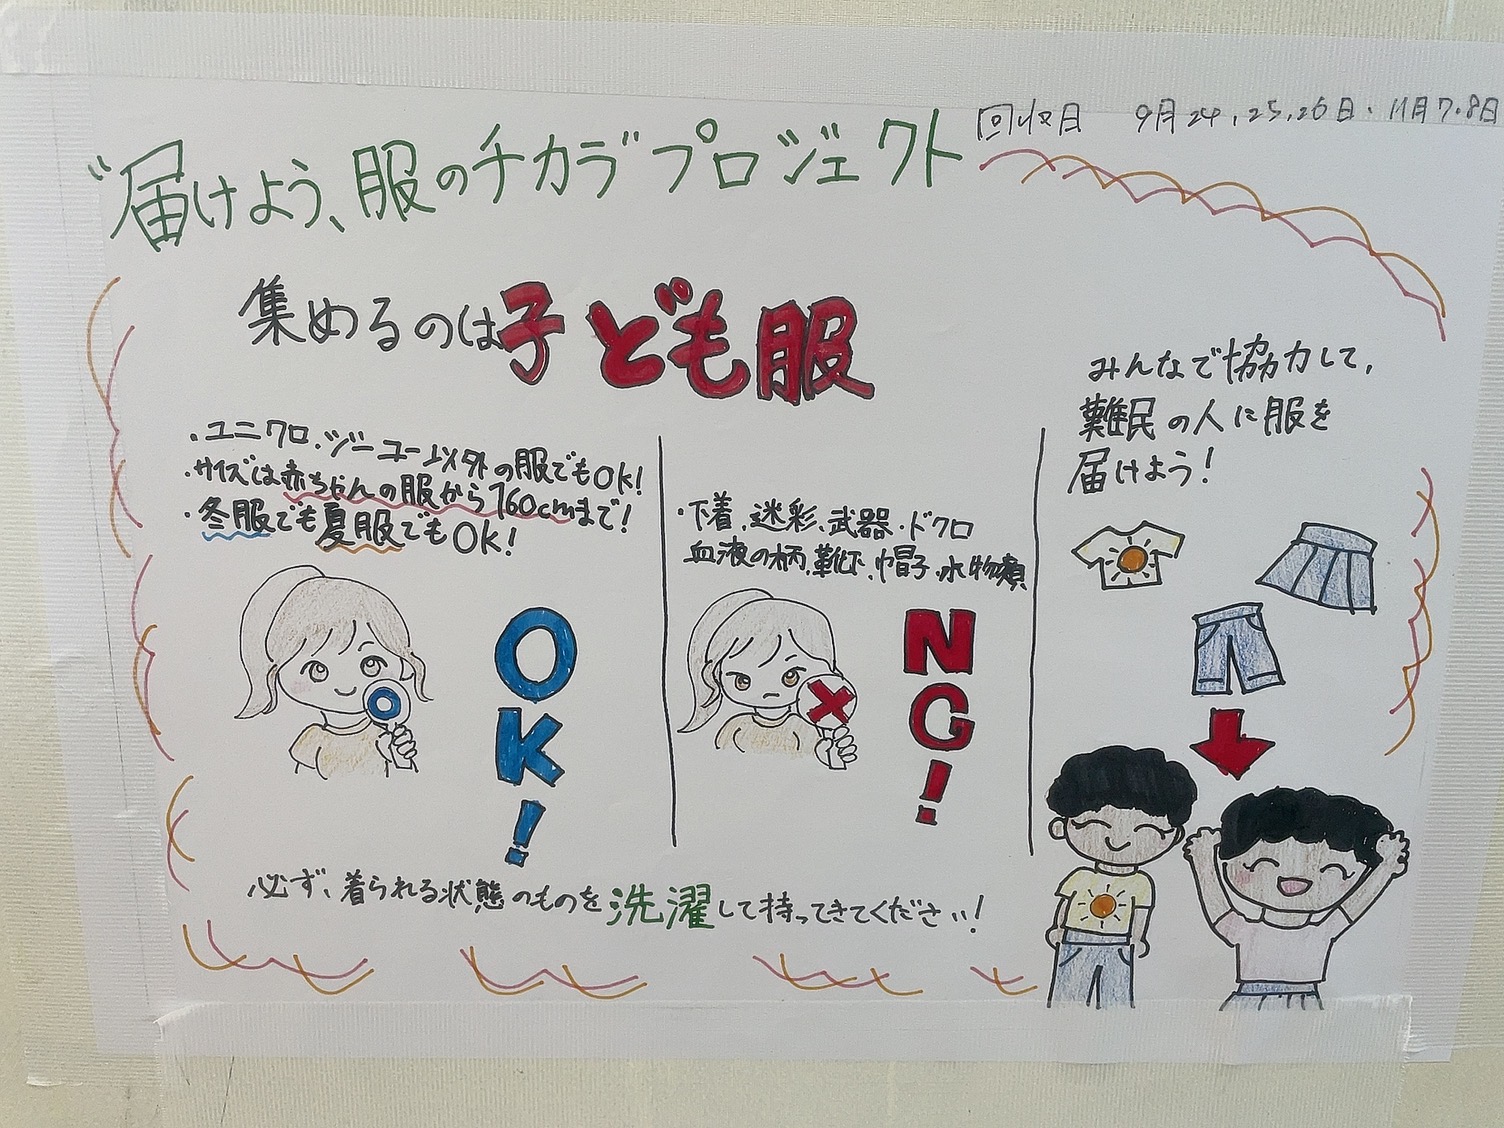 回収日 9月24,25,26日・11月7.8日
"届けよう、服のチカラ"プロジェクト
集めるのは子ども服
・ユニクロ・ジーユー以外の服でもOK!
・サイズは赤ちゃんの服から160cmまで!
・冬服でも夏服でもOK!
OK!
・下着、迷彩、武器・ドクロ
血液の柄、靴下、帽子、水物類
NG!
みんなで協力して、
難民の人に服を
届けよう!
必ず、着られる状態のものを洗濯して持ってきてください!